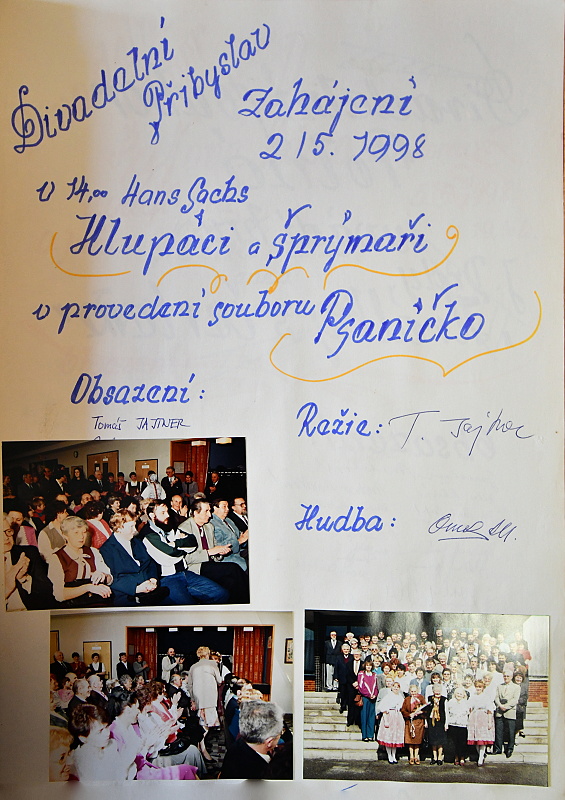 Divadelní
Přibyslav
Zahájení
2/5. 1998
v 14,00 Hans Sachs
Hlupáci a šprýmaři
v provedení souboru Psaníčko
Obsazení:
Tomáš JAJTNER
Režie: T. Jajtner
Hudba: